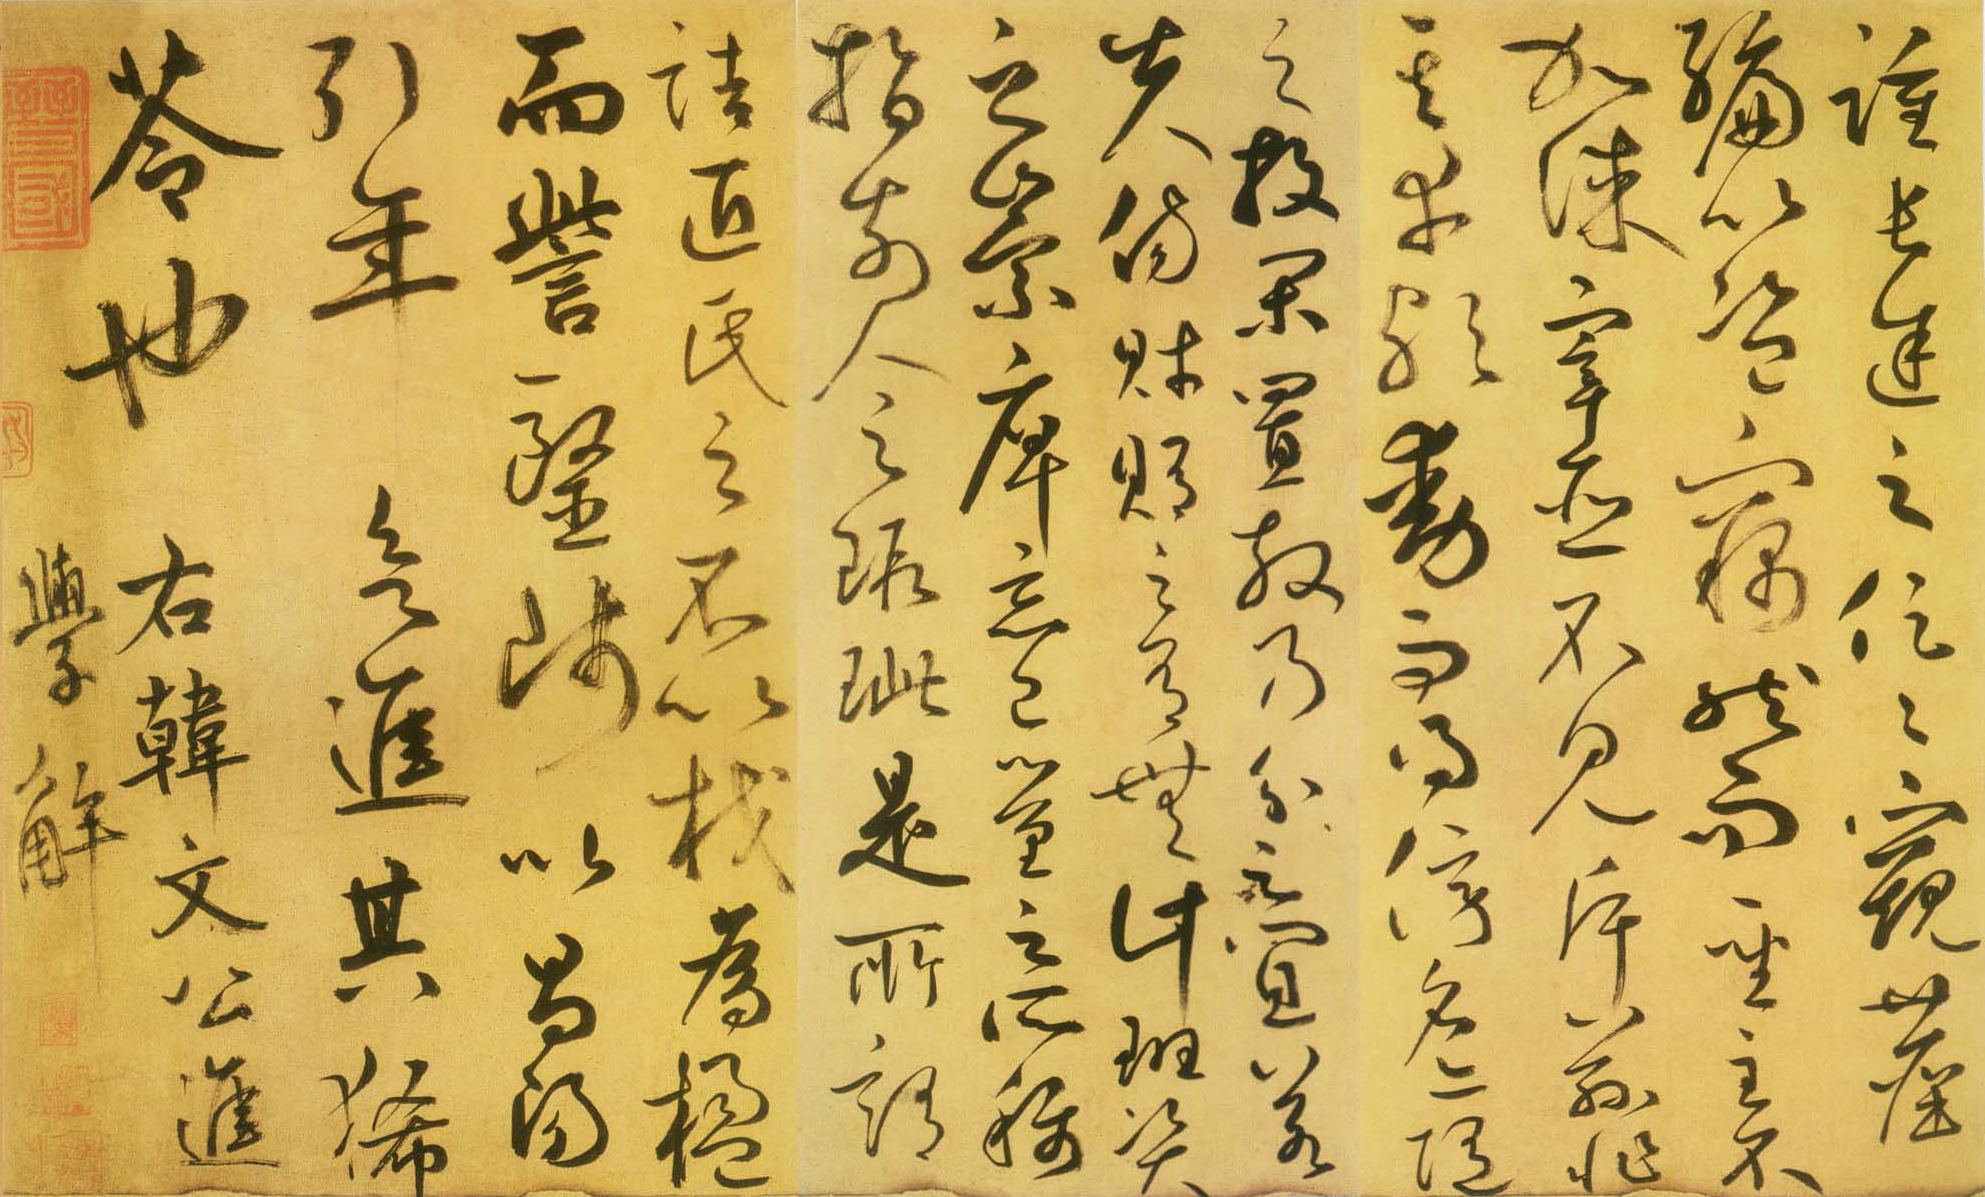 踵長途之促促窺舊
編以盜竊然而聖主不
加誅宰臣不見斥茲非
其幸歟動而得謗名亦隨
之投閑置散乃分之宜若
夫商財賄之有無計班資
之崇庳忘己量之所稱
指前人之瑕玼是所謂
詰匠氏之不以杙為楹
而訾醫師以昌陽
引年欲進其豨
苓也 右韓文公進
學解